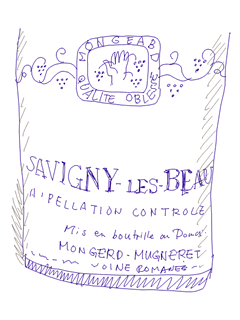 MONGEARD
QUALITE OBLIGE
SAVIGNY-LES-BEAU
A'PELLATION CONTROLE
Mis en bouteille au Domai
MONGERD-MUGNERET
VOINE ROMANEE